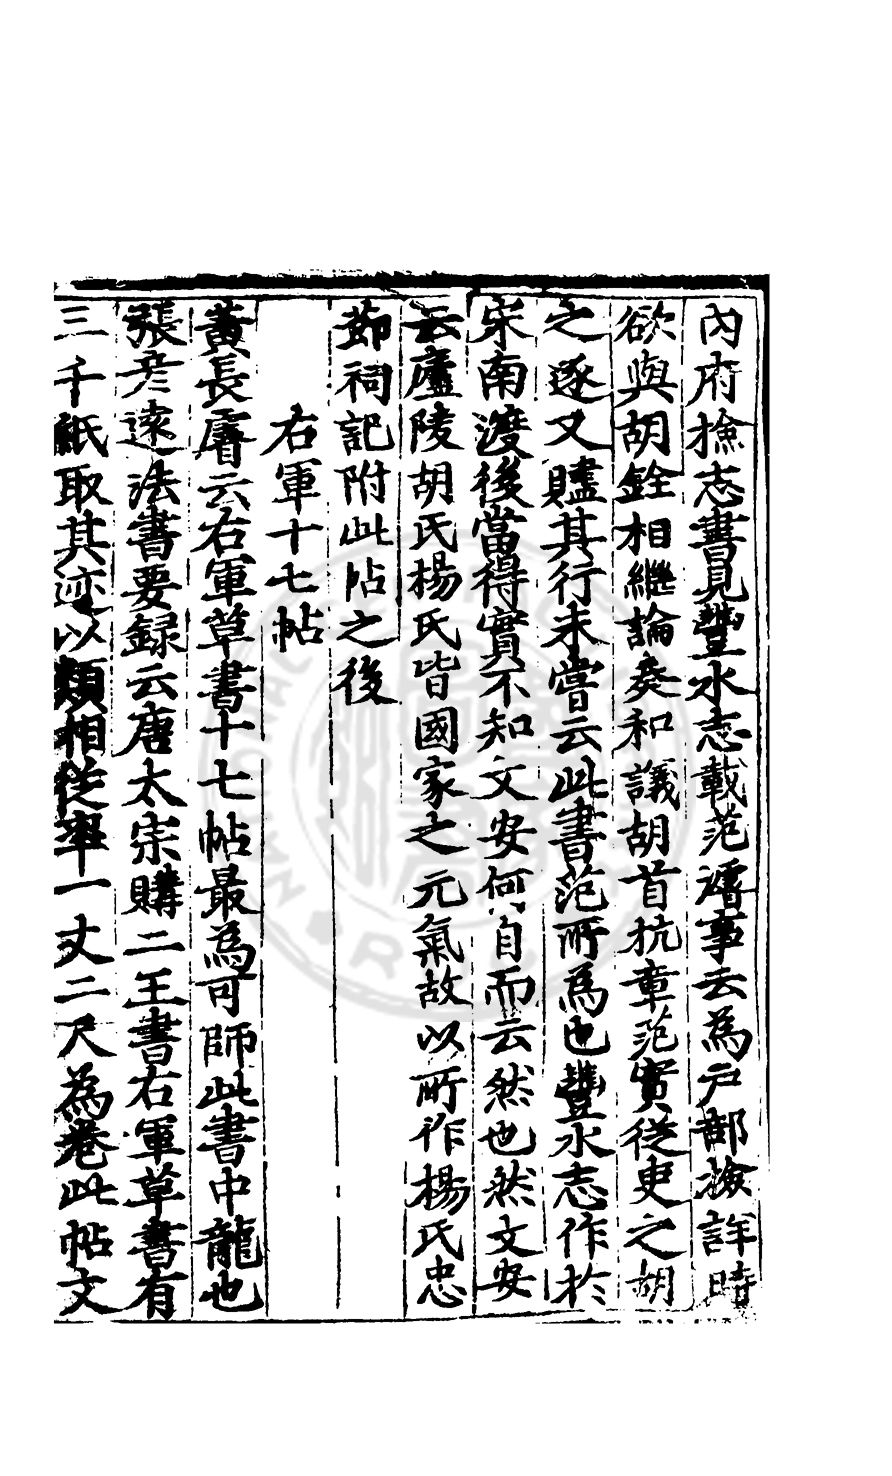 內府撿志書見豐水志載范濬事云為戶部撿詳時
欲與胡銓相繼論奏和議胡首抗章范實從吏之胡
之逐又贐其行未嘗云此書范所為也豐水志作於
宋南渡後當得實不知文安何自而云然也然文安
云廬陵胡氏楊氏皆國家之元氣故以所作楊氏忠
節祠記附此帖之後
右軍十七帖
黃長睿云右軍草書十七帖最為可師此書中龍也
張彥遠法書要録云唐太宗購二王書右軍草書有
三千紙取其迹以類相從率一丈二尺為卷此帖文